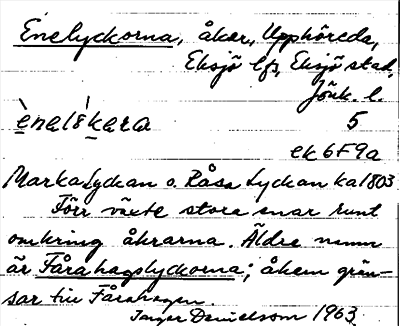 Enelyckorna, åker, Upphöreda,
Eksjö lfs, Eksjö stad,
Jönk. l.
ènalỳkara 5
ek 6F9a
Marka Lyckan o. Råsa Lyckan ka 1803
Förr växte stora enar runt
omkring åkrarna. Äldre namn
är Fårahagslyckorna; åkern grän-
sar till Fårahagen.
Inger Danielsom 1963